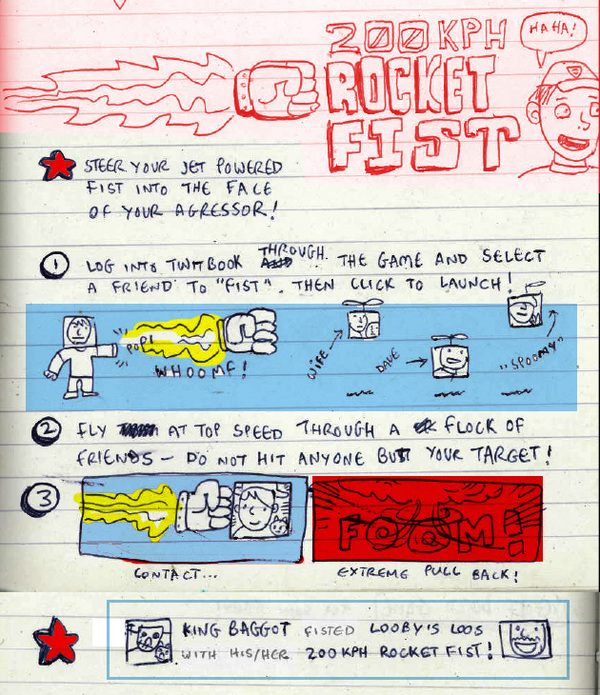 200 KPH
ROCKET
FIST
HAHA!
STEER YOUR JET POWERED
FIST INTO THE FACE
OF YOUR AGRESSOR!
1 LOG INTO TWITBOOK THROUGH THE GAME AND SELECT
A FRIEND TO "FIST". THEN CLICK TO LAUNCH!
POP!
WHOOMF!
WIFE
DAVE
"SPOOMY"
2 FLY AT TOP SPEED THROUGH A FLOCK OF
FRIENDS – DO NOT HIT ANYONE BUT YOUR TARGET!
3
FOOM!
CONTACT...
EXTREME PULL BACK!
KING BAGGOT FISTED LOOBY'S LOOS
WITH HIS/HER 200 KPH ROCKET FIST!